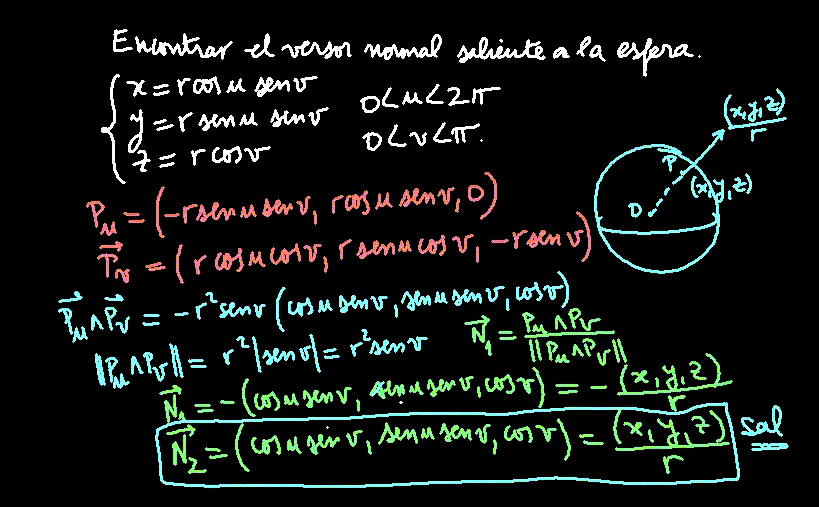 Encontrar el versor normal saliente a la esfera.
x = r cos u sen v
y = r sen u sen v   0 < u < 2π
z = r cos v   0 < v < π.
(x, y, z) / r
P
(x, y, z)
O
P_u = (-r sen u sen v, r cos u sen v, 0)
P⃗_v = (r cos u cos v, r sen u cos v, -r sen v)
P⃗_u ∧ P⃗_v = -r² sen v (cos u sen v, sen u sen v, cos v)
||P_u ∧ P_v|| = r² |sen v| = r² sen v   N⃗_1 = P_u ∧ P_v / ||P_u ∧ P_v||
N⃗_1 = -(cos u sen v, sen u sen v, cos v) = - (x, y, z) / r
N⃗_2 = (cos u sen v, sen u sen v, cos v) = (x, y, z) / r   sal